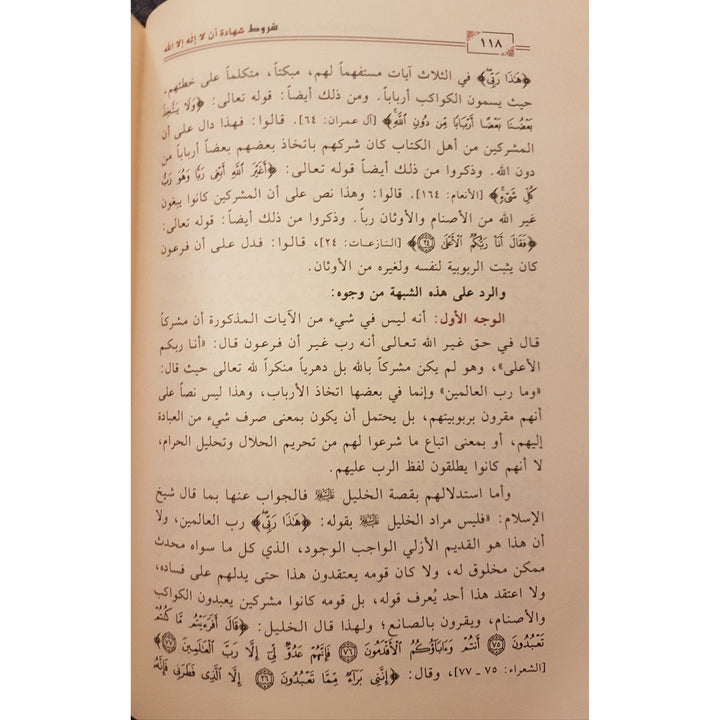 شروط شهادة أن لا إله إلا الله
١١٨
﴿هَٰذَا رَبِّي﴾ في الثلاث آيات مستفهماً لهم، مبكتاً، متكلماً على خطئهم،
حيث يسمون الكواكب أرباباً. ومن ذلك أيضاً: قوله تعالى: ﴿وَلَا يَتَّخِذَ
بَعْضُنَا بَعْضًا أَرْبَابًا مِّن دُونِ اللَّهِ﴾ [آل عمران: ٦٤]. قالوا: فهذا دال على أن
المشركين من أهل الكتاب كان شركهم باتخاذ بعضهم بعضاً أرباباً من
دون الله. وذكروا من ذلك أيضاً قوله تعالى: ﴿أَغَيْرَ اللَّهِ أَبْغِي رَبًّا وَهُوَ رَبُّ
كُلِّ شَيْءٍ﴾ [الأنعام: ١٦٤]. قالوا: وهذا نص على أن المشركين كانوا يبغون
غير الله من الأصنام والأوثان رباً. وذكروا من ذلك أيضاً: قوله تعالى:
﴿فَقَالَ أَنَا رَبُّكُمُ الْأَعْلَىٰ ٢٤﴾ [النازعات: ٢٤]، قالوا: فدل على أن فرعون
كان يثبت الربوبية لنفسه ولغيره من الأوثان.
والرد على هذه الشبهة من وجوه:
الوجه الأول: أنه ليس في شيء من الآيات المذكورة أن مشركاً
قال في حق غير الله تعالى أنه رب غير أن فرعون قال: «أنا ربكم
الأعلى»، وهو لم يكن مشركاً بالله بل دهرياً منكراً لله تعالى حيث قال:
«وما رب العالمين» وإنما في بعضها اتخاذ الأرباب، وهذا ليس نصاً على
أنهم مقرون بربوبيتهم، بل يحتمل أن يكون بمعنى صرف شيء من العبادة
إليهم، أو بمعنى اتباع ما شرعوا لهم من تحريم الحلال وتحليل الحرام،
لا أنهم كانوا يطلقون لفظ الرب عليهم.
وأما استدلالهم بقصة الخليل ﷺ فالجواب عنها بما قال شيخ
الإسلام: «فليس مراد الخليل ﷺ بقوله: ﴿هَٰذَا رَبِّي﴾ رب العالمين، ولا
أن هذا هو القديم الأزلي الواجب الوجود، الذي كل ما سواه محدث
ممكن مخلوق له، ولا كان قومه يعتقدون هذا حتى يدلهم على فساده،
ولا اعتقد هذا أحد يُعرف قوله، بل قومه كانوا مشركين يعبدون الكواكب
والأصنام، ويقرون بالصانع؛ ولهذا قال الخليل: ﴿قَالَ أَفَرَءَيْتُم مَّا كُنتُمْ
تَعْبُدُونَ ٧٥ أَنتُمْ وَءَابَآؤُكُمُ الْأَقْدَمُونَ ٧٦ فَإِنَّهُمْ عَدُوٌّ لِّي إِلَّا رَبَّ الْعَالَمِينَ ٧٧﴾
[الشعراء: ٧٥ ـ ٧٧]، وقال: ﴿إِنَّنِي بَرَآءٌ مِّمَّا تَعْبُدُونَ ٢٦ إِلَّا الَّذِي فَطَرَنِي فَإِنَّهُ